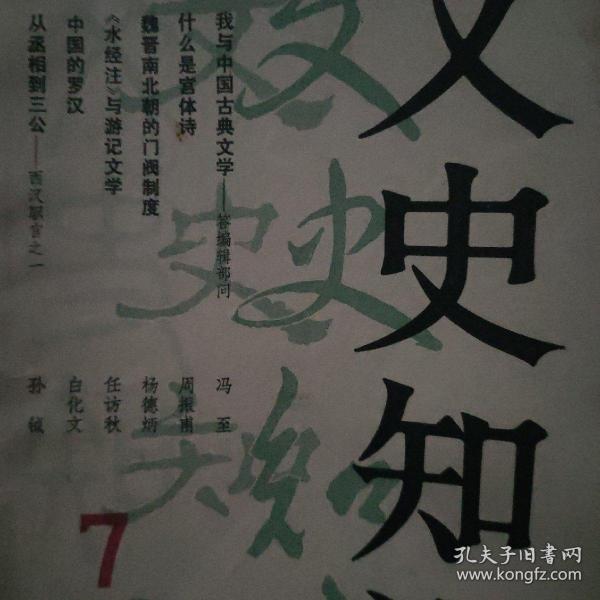 文史知
我与中国古典文学——答编辑部问 冯至
什么是宫体诗 周振甫
魏晋南北朝的门阀制度 杨德炳
《水经注》与游记文学 任访秋
中国的罗汉 白化文
从丞相到三公——西汉职官之一 孙钺
7
孔夫子旧书网
www.kongfz.com